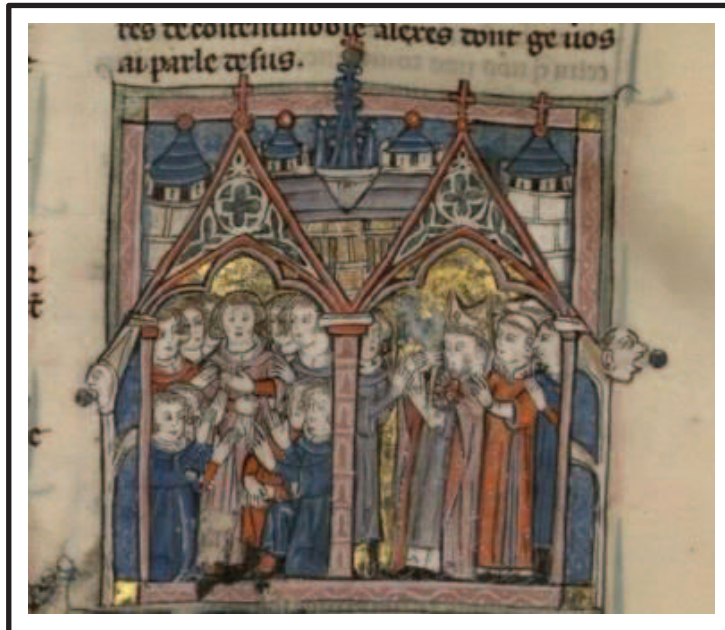 tes de costentinoble alexes dont ge uos
ai parle desus.